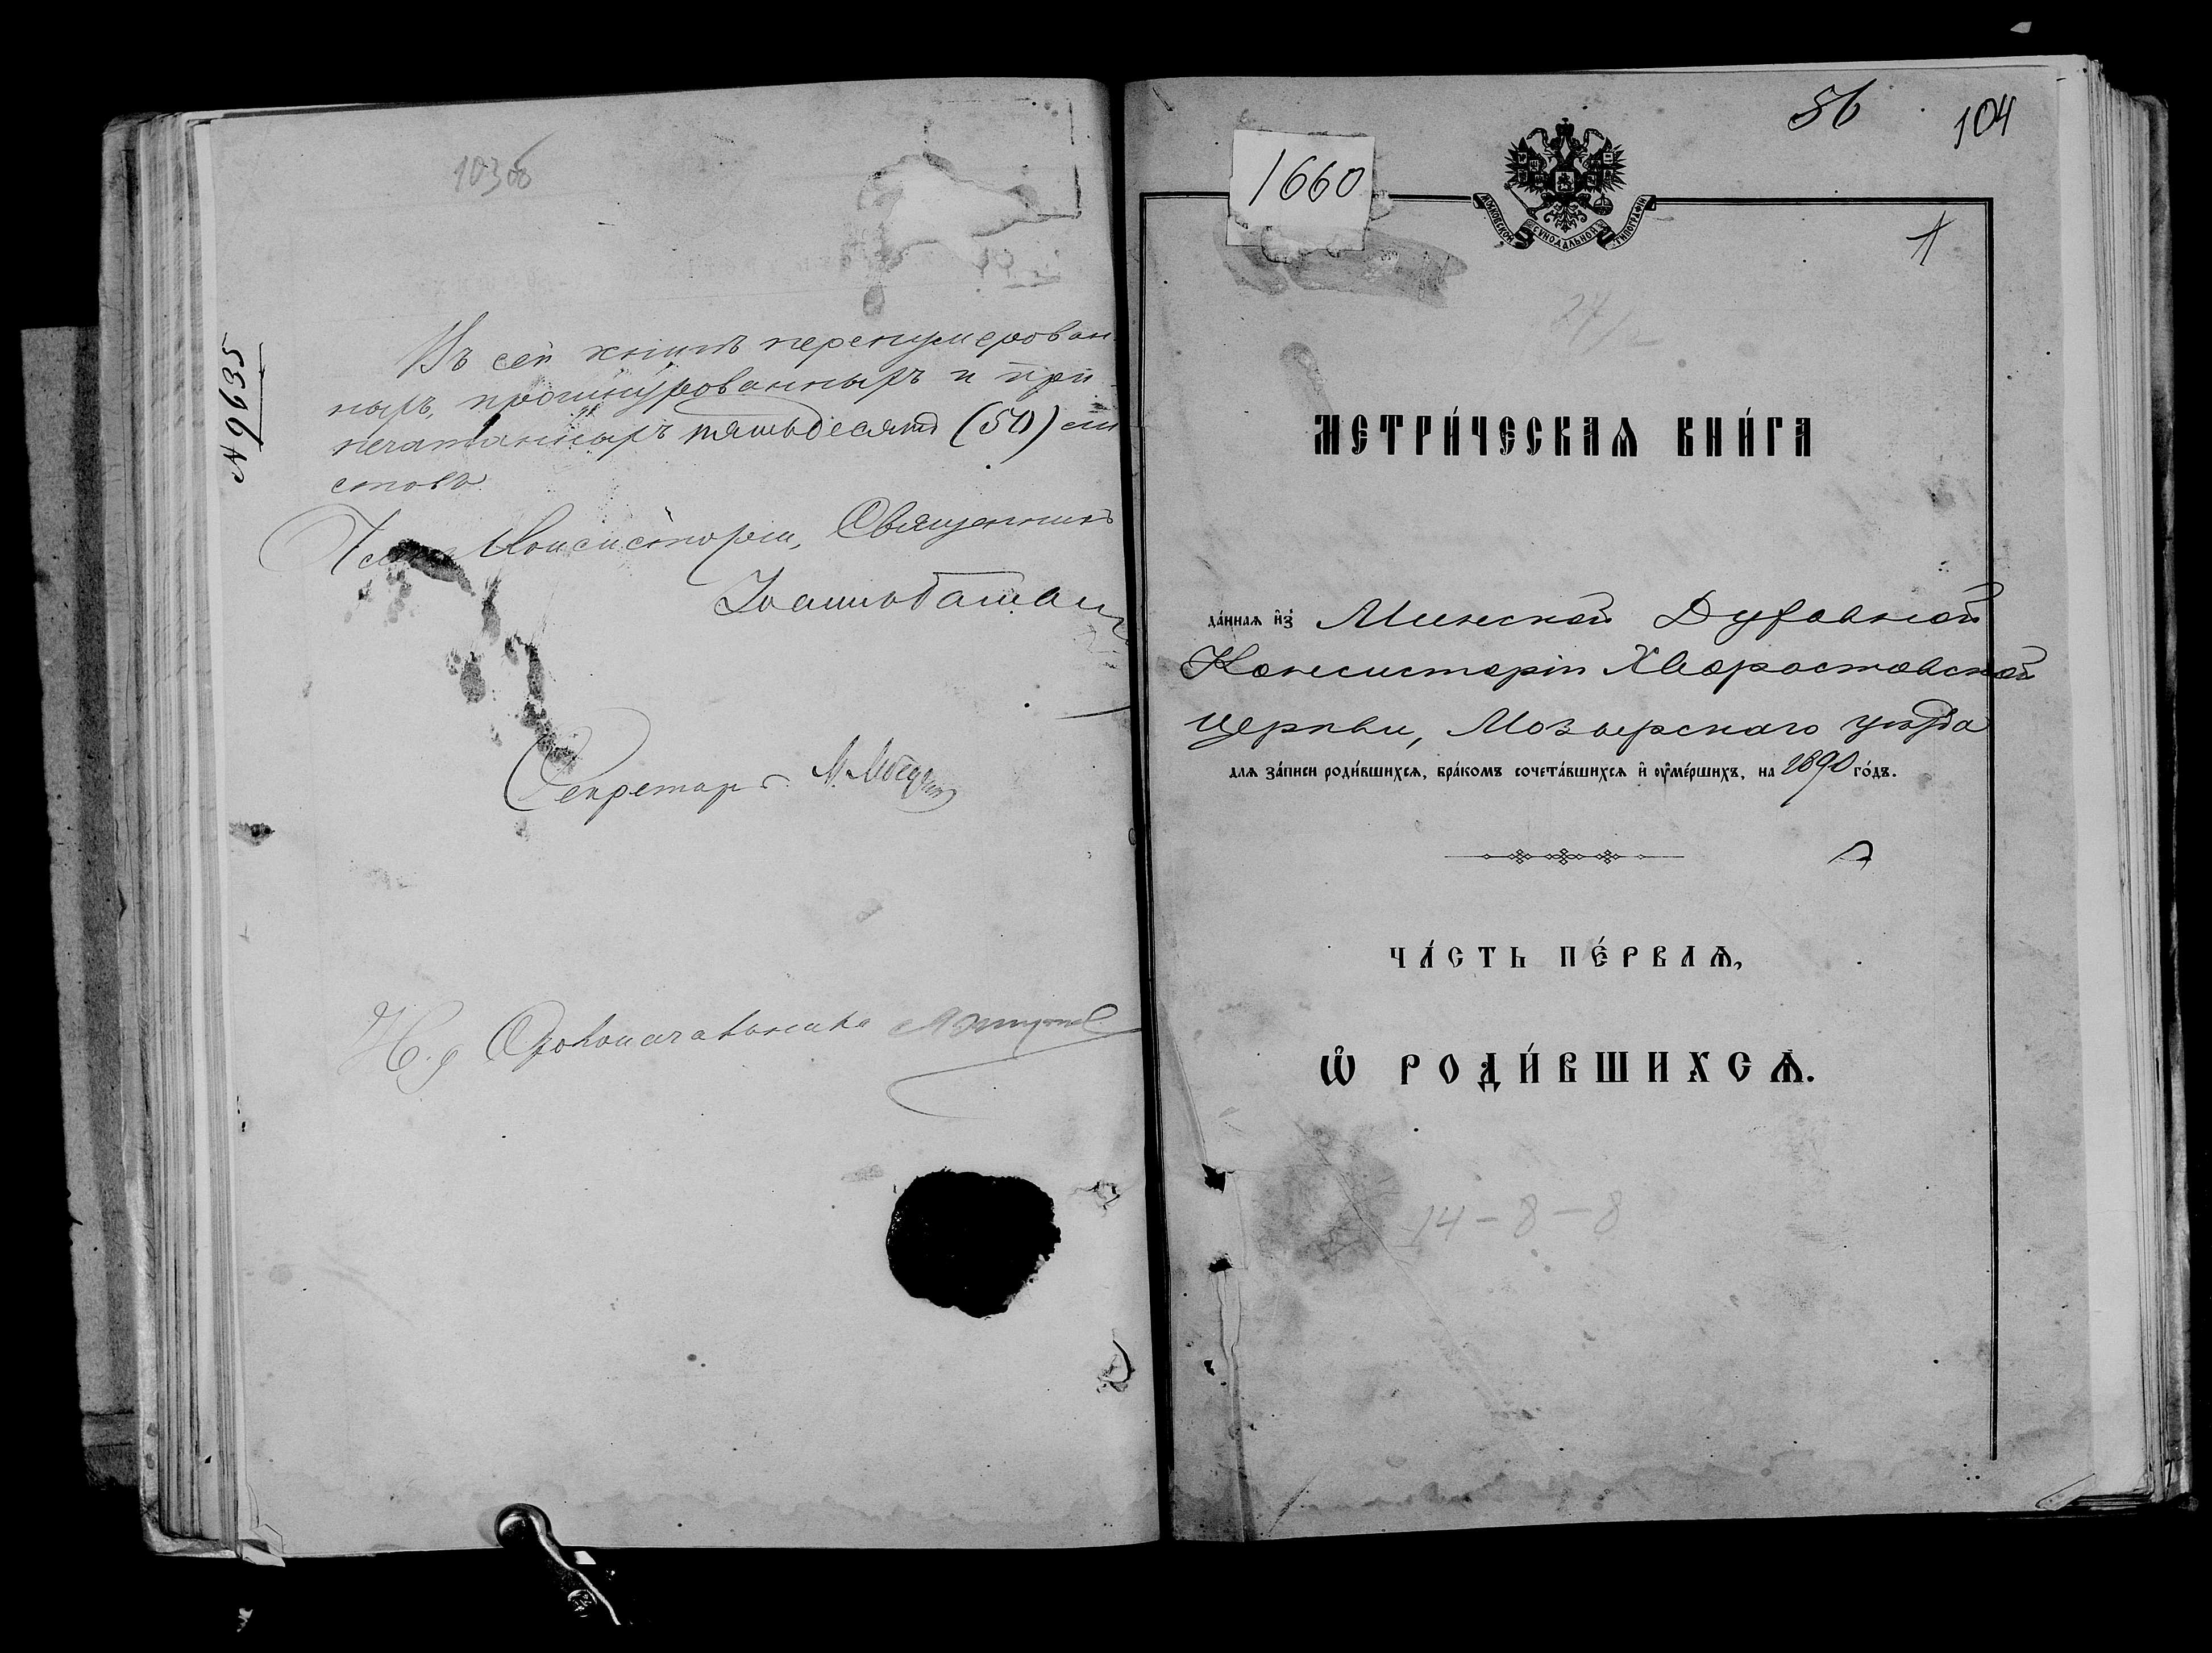 103об
№ 9635
Въ сей книгѣ перенумерован
ныхъ, прошнурованныхъ и при
печатанныхъ пятьдесятъ (50) ли
стовъ
Членъ Консисторіи, Священникъ
Іоаннъ
Секретарь
И. д. Столоначальника
56
104
1660
МОСКОВСКОЙ СѴНОДАЛЬНОЙ ТИПОГРАФІИ
1
МЕТРИ́ЧЕСКАѦ КНИ́ГА
да́ннаѧ и҆з̾ Минской Духовной
Консисторіи Хворостовской
церкви, Мозырскаго уѣзда
для за́писи роди́вшихсѧ, бра́комъ сочета́вшихсѧ и҆ ᲂу҆ме́ршихъ, на 1890 го́дъ.
ЧА́СТЬ ПЕ́РВАѦ,
Ѡ҆ РОДИ́ВШИХСѦ.
14-8-8